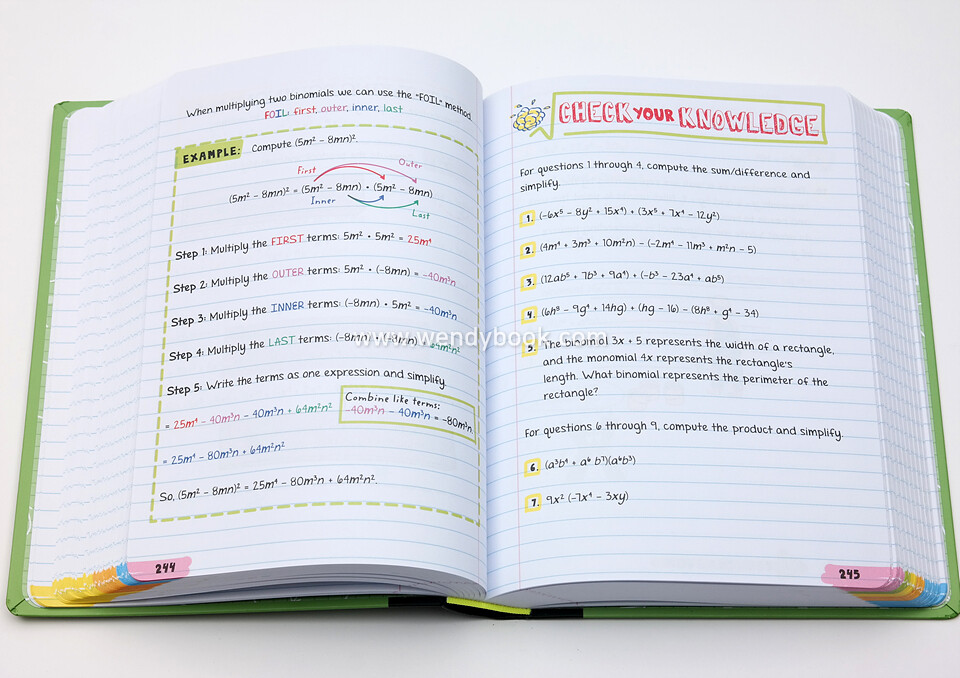 When multiplying two binomials we can use the "FOIL" method.
FOIL: first, outer, inner, last
EXAMPLE: Compute (5m² – 8mn)².
First
Outer
(5m² – 8mn)² = (5m² – 8mn) • (5m² – 8mn)
Inner
Last
Step 1: Multiply the FIRST terms: 5m² • 5m² = 25m⁴
Step 2: Multiply the OUTER terms: 5m² • (-8mn) = -40m³n
Step 3: Multiply the INNER terms: (-8mn) • 5m² = -40m³n
Step 4: Multiply the LAST terms: (-8mn) • (-8mn) = 64m²n²
Step 5: Write the terms as one expression and simplify.
= 25m⁴ – 40m³n – 40m³n + 64m²n²
Combine like terms:
-40m³n – 40m³n = -80m³n
= 25m⁴ – 80m³n + 64m²n²
So, (5m² – 8mn)² = 25m⁴ – 80m³n + 64m²n².
244
www.wendybook.com
CHECK YOUR KNOWLEDGE
For questions 1 through 4, compute the sum/difference and
simplify.
1. (-6x⁵ – 8y² + 15x⁴) + (3x⁵ + 7x⁴ – 12y²)
2. (4m⁴ + 3m³ + 10m²n) – (-2m⁴ – 11m³ + m²n – 5)
3. (12ab⁵ + 7b³ + 9a⁴) + (-b³ – 23a⁴ + ab⁵)
4. (6h⁸ – 9g⁴ + 14hg) + (hg – 16) – (8h⁸ + g⁴ – 34)
5. The binomial 3x + 5 represents the width of a rectangle,
and the monomial 4x represents the rectangle's
length. What binomial represents the perimeter of the
rectangle?
For questions 6 through 9, compute the product and simplify.
6. (a³b⁴ + a⁶ b⁷)(a⁶b³)
7. 9x² (-7x⁴ – 3xy)
245